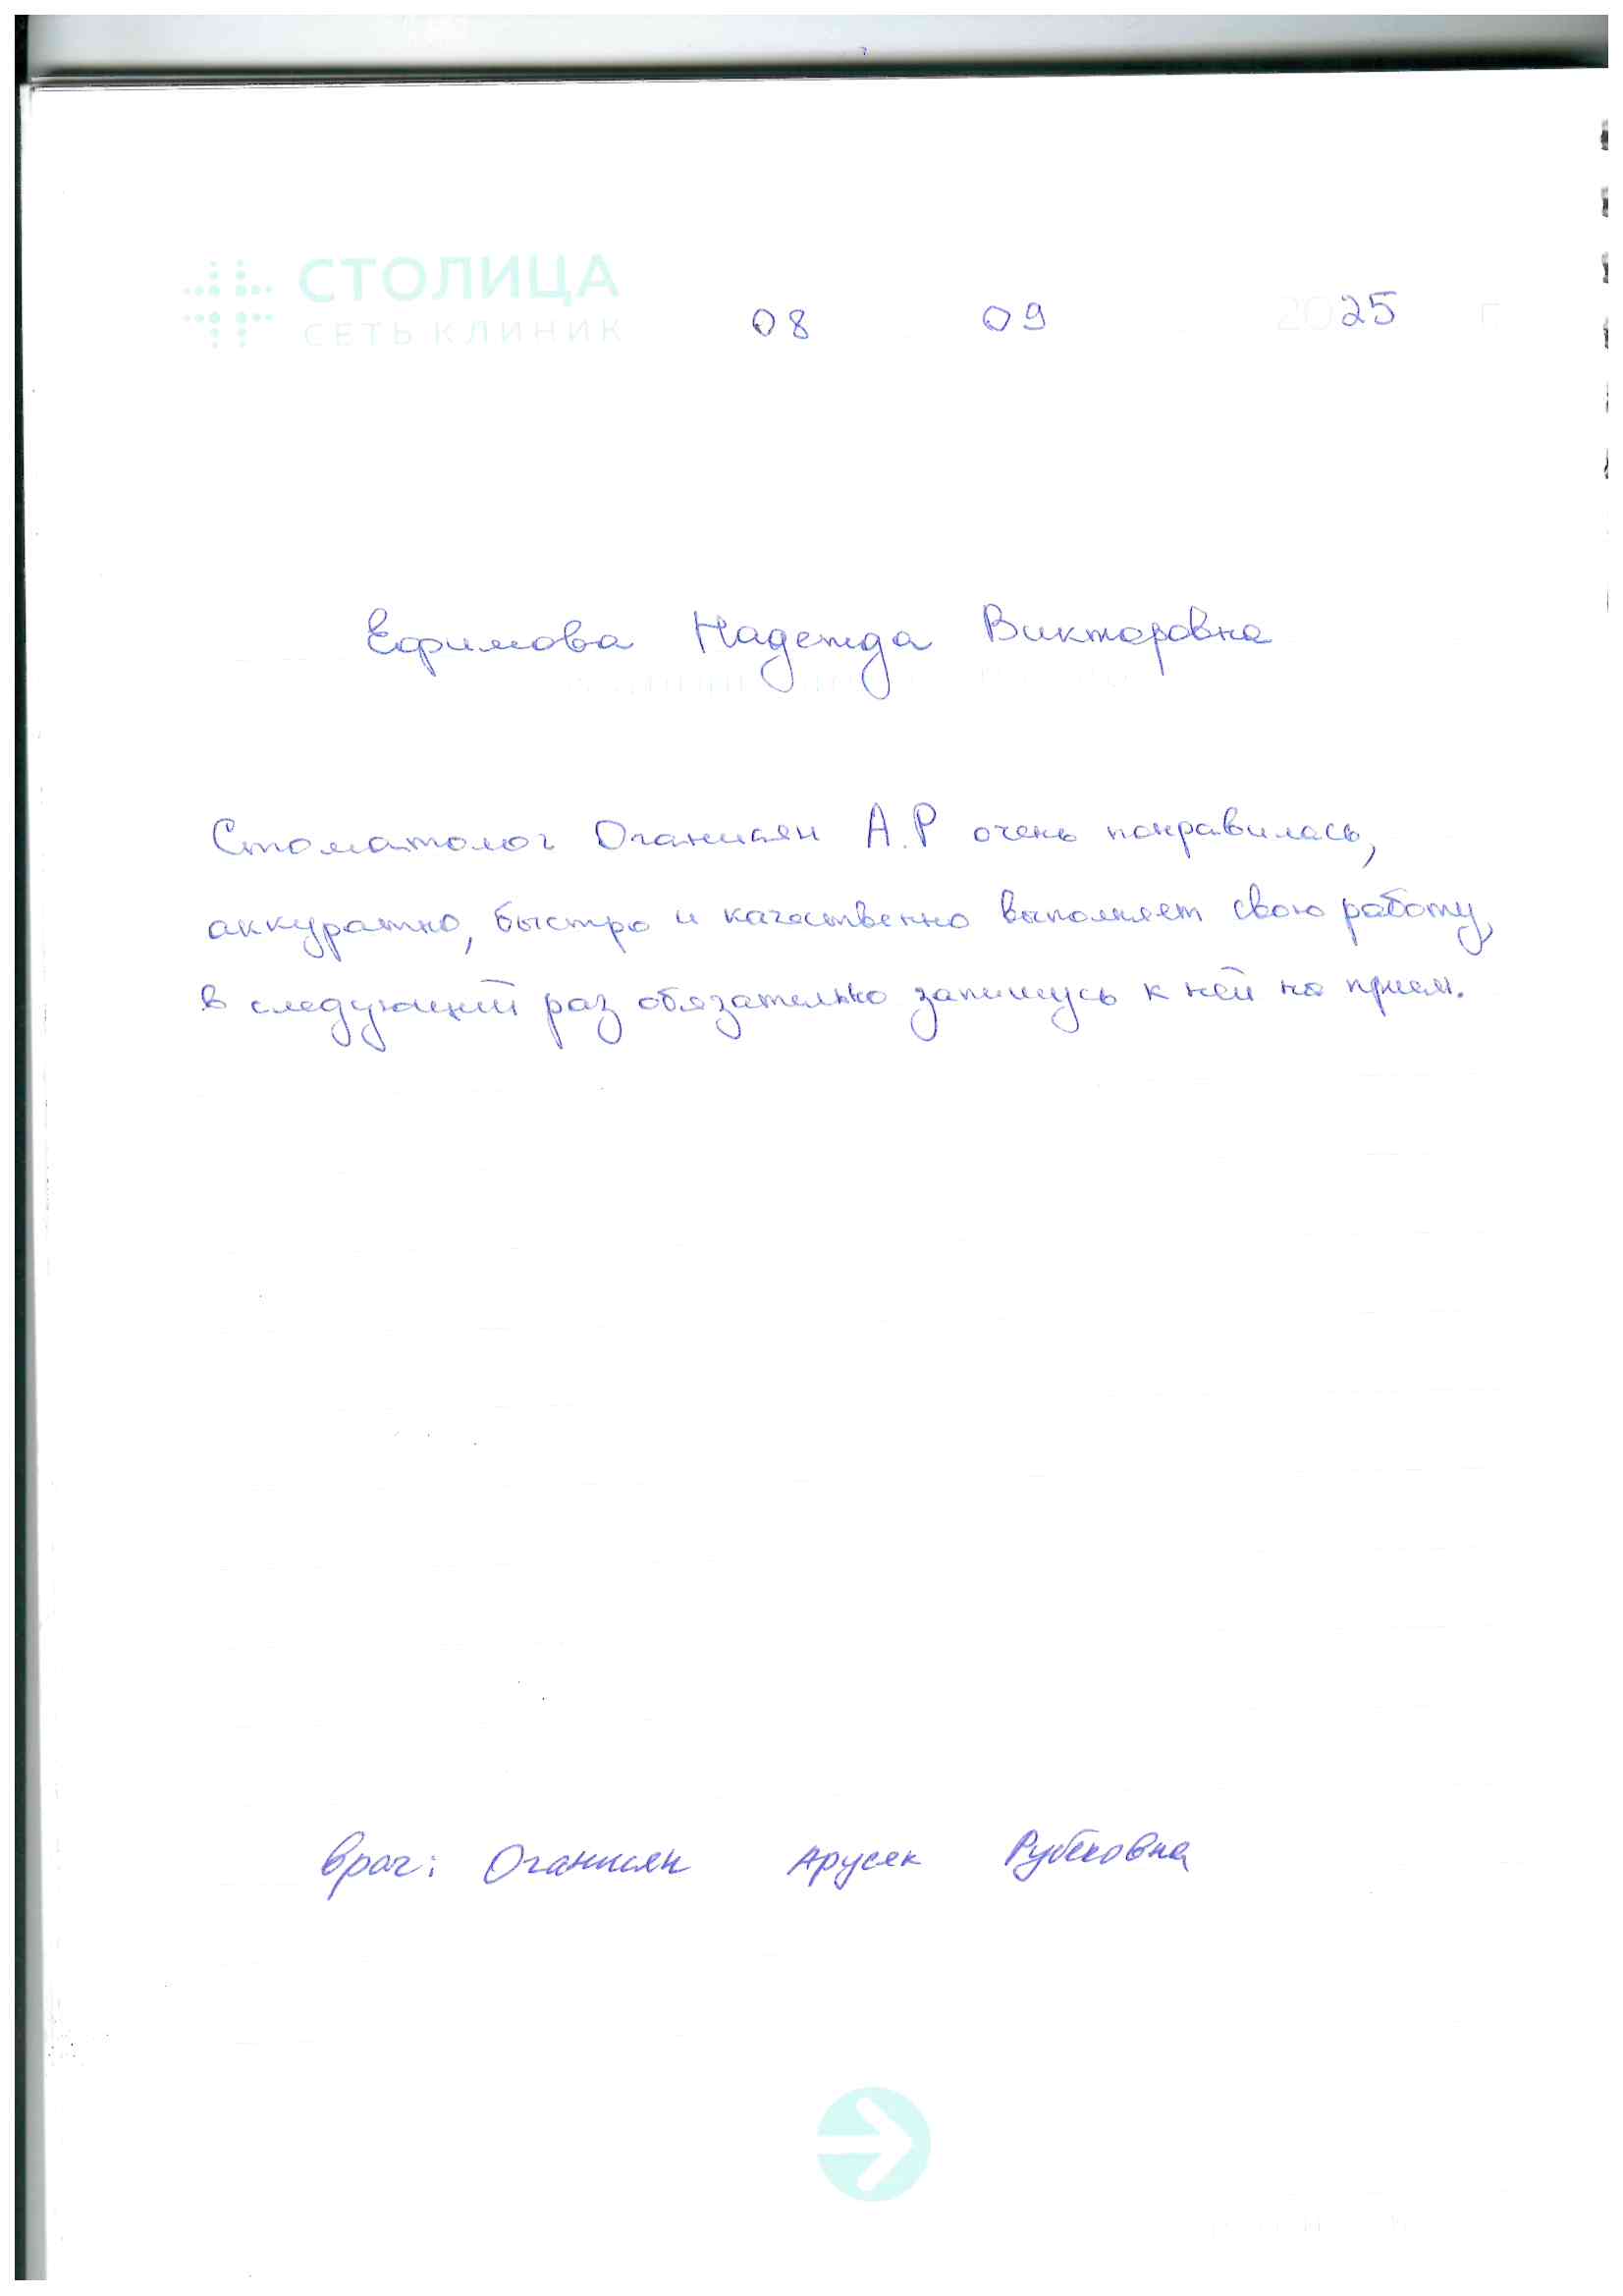 СТОЛИЦА
СЕТЬ КЛИНИК
08 09 2025 г
Ефимова Надежда Викторовна
Стоматолог Оганисян А.Р очень понравилась,
аккуратно, быстро и качественно выполняет свою работу,
в следующий раз обязательно запишусь к ней на прием.
врач: Оганисян Арусяк Рубековна